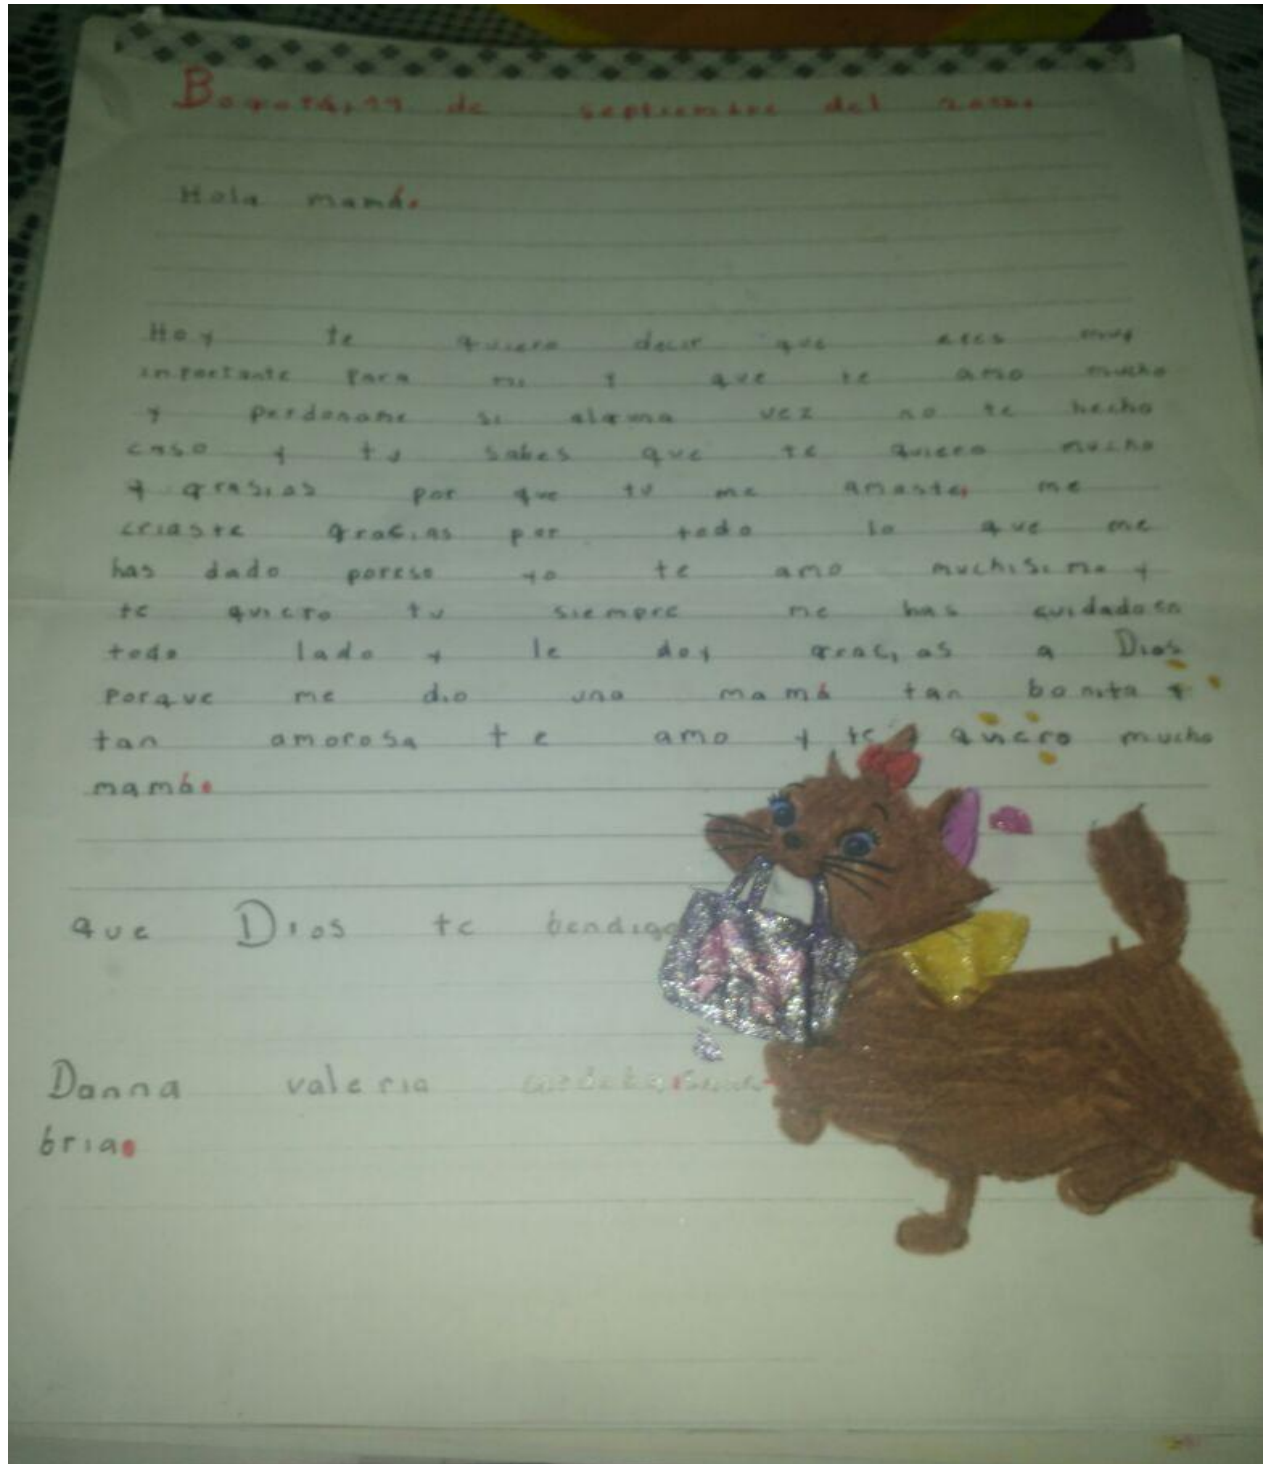 Bogotá, 19 de septiembre del
Hola mamá.
Hoy te quiero decir que eres muy
importante para mi y que te amo mucho
y perdoname si alguna vez no te hecho
caso y tu sabes que te quiero mucho
y grasias por que tu me amaste, me
criaste gracias por todo lo que me
has dado poreso yo te amo muchisimo y
te quiero tu siempre me has cuidado en
todo lado y le doy gracias a Dios
porque me dio una mamá tan bonita y
tan amorosa te amo y te quiero mucho
mamá.
que Dios te bendiga
Danna valeria
bria.